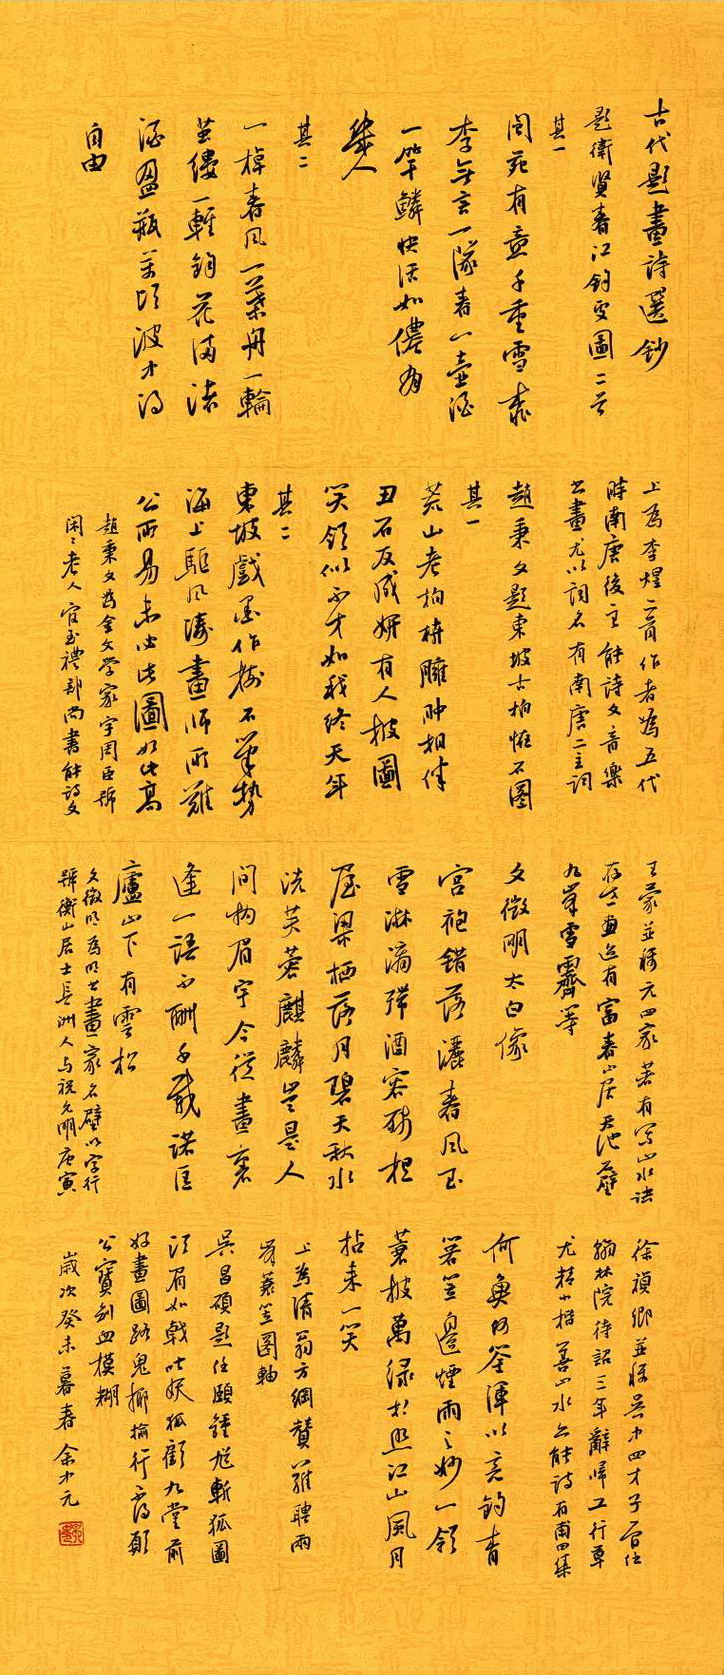 古代題畫詩選鈔
題衛賢春江釣叟圖二首
其一
閬苑有意千重雪桃
李無言一隊春一壺酒
一竿鱗快活如儂有
幾人
其二
一棹春風一葉舟一輪
茧縷一輕鉤花滿渚
酒盈瓶萬頃波中得
自由
上為李煜二首作者為五代
時南唐後主能詩文音樂
書畫尤以詞名有南唐二主詞
趙秉文題東坡古柏怪石圖
其一
荒山老柏枿臃肿相伴
丑石反成妍有人披圖
笑領似不才如我終天年
其二
東坡戲墨作樹石筆勢
海上驅風濤畫師所難
公所易未必此圖如此高
趙秉文為金文学家字周臣號
闲〻老人官至禮部尚書能詩文
王蒙並稱元四家著有寫山水訣
存世画迹有富春山居天池石壁
九峯雪霽等
文徵明太白像
宮袍錯落灑春風玉
雪淋漓殢酒容殘植
屋梁栖落月碧天秋水
洗芙蓉麒麟豈是人
間物眉宇今從畫裏
逢一語不酬千載諾匡
廬山下有雲松
文徵明為明書畫家名壁以字行
號衡山居士長洲人与祝允明唐寅
徐禎卿並稱吳中四才子官任
翰林院待詔三年辭帰工行草
尤精小楷善山水亦能詩有甫田集
何魚何筌渾以意釣青
箬笠邊煙雨之妙一領
蓑披萬綠於照江山風月
拈来一笑
上為清翁方綱贊羅聘雨
蓑笠圖軸
吳昌碩題任頤鍾馗斬狐圖
須眉如戟叱妖狐顧九堂前
好畫圖路鬼揶揄行不得願
公寶劍血模糊
歲次癸未暮春余中元